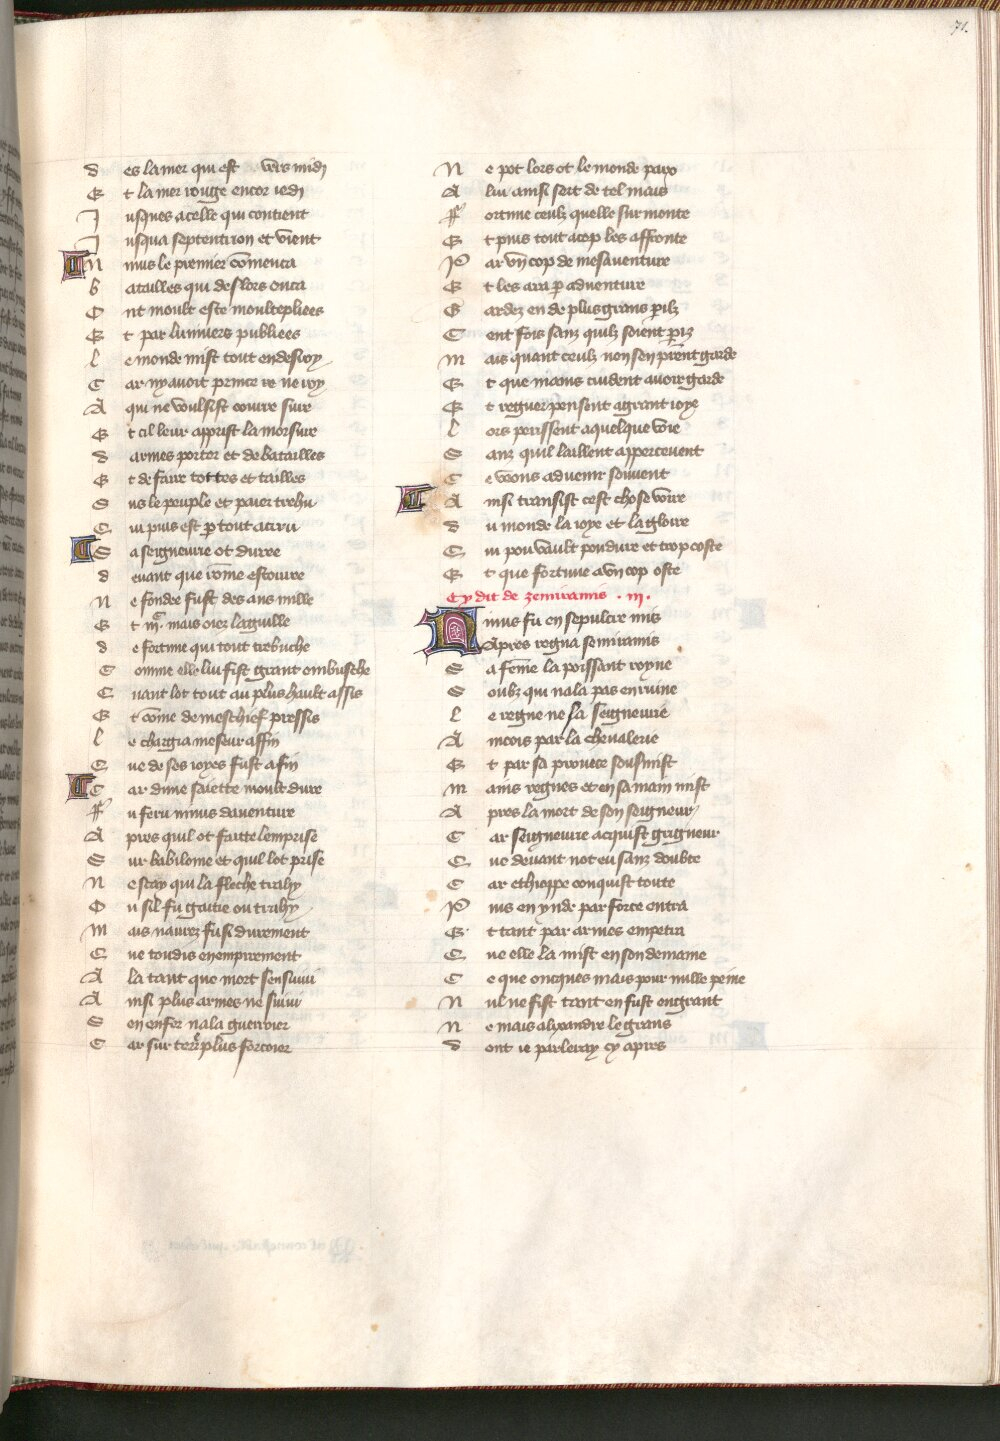 71.
Des la mer qui est vers midy
Et la mer rouge encor iedy
Jusques a celle qui contient
Jusqua septentrion et vient
Ninus le premier comenca
Batailles qui des lors en ca
Ont moult este moultepliees
Et par lunivers publiees
Le monde mist tout en desroy
Car ny avoit prince ne roy
A qui ne voulsist courre sure
Et cil leur apprist la morsure
Darmes porter et de batailles
Et de faire toltes et tailles
Sus le peuple et paier trehu
Qui puis est par tout acreu
Sa seigneurie ot duree
Devant que rome estouree
Ne fondee fust des ans mille
Et iiiᶜ. mais oiez la guille
De fortune qui tout trebuche
Comme elle lui fist grant embusche
Quant lot tout au plus hault assis
Et come de meschief pressis
Le chargia meseur affin
Que de ses ioyes fust a fin
Car dune saiette moult dure
Fu feru ninus daventure
Apres quil ot faitte lemprise
Sur babiloine et quil lot prise
Ne scay qui la fleche trahy
Ou sil fu gaitie ou trahy
Mais navrez fu si durement
Que toudis en empirement
Ala tant que mort sensuivi
Ainsi plus armes ne suivi
Sen enfer nala guerroier
Car sur terre plus forcoier
Ne pot lors ot le monde paix
A lui ainsi sert de tel mais
Fortune ceulx quelle surmonte
Et puis tout a cop les affronte
Par un cop de mesaventure
Et les ara par adventure
Gardez en de plus grans perilz
Cent fois sanz quilz soient periz
Mais quant ceulx non sen prennent garde
Et que moins cuident avoir garde
Et regner pensent a grant ioye
Lors perissent a quelque voie
Sanz quil laillent appercevent
Ce veons advenir souvent
Ainsi transist cest chose voire
Du monde la ioye et la gloire
Qui pou vault pou dure et trop coste
Et que fortune a un cop oste
Cy dit de zemiramis . iii.
Ninus fu en sepulcre mis
Apres regna semiramis
Sa feme la poissant royne
Soubz qui nala pas en ruine
Le regne ne la seigneurie
Aincois par la chevalerie
Et par sa prouece sousmist
Mains regnes et en sa main mist
Apres la mort de son seigneur
Car seigneurie acquist grigneur
Que devant not eu sanz doubte
Car ethioppe conquist toute
Puis en ynde par force entra
Et tant par armes empetra
Que elle la mist en son demaine
Ce que oncques mais pour nulle peine
Nul ne fist tant en fust engrant
Ne mais alixandre le grans
Dont ie parleray cy apres